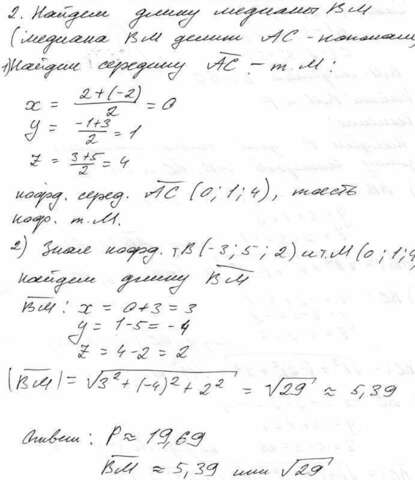 2. Найдем длину медианы BM
(медиана BM делит AC - пополам)
1) Найдем середину AC - т. M:
x = (2+(-2))/2 = 0
y = (-1+3)/2 = 1
z = (3+5)/2 = 4
коорд. серед. AC (0; 1; 4), тоесть
коор. т. M.
2) Зная коорд. т B (-3; 5; 2) и т. M (0; 1; 4
найдем длину BM
BM: x = 0+3 = 3
y = 1-5 = -4
z = 4-2 = 2
|BM| = √3² + (-4)² + 2² = √29 ≈ 5,39
Ответ: P ≈ 19,69
BM ≈ 5,39 или √29